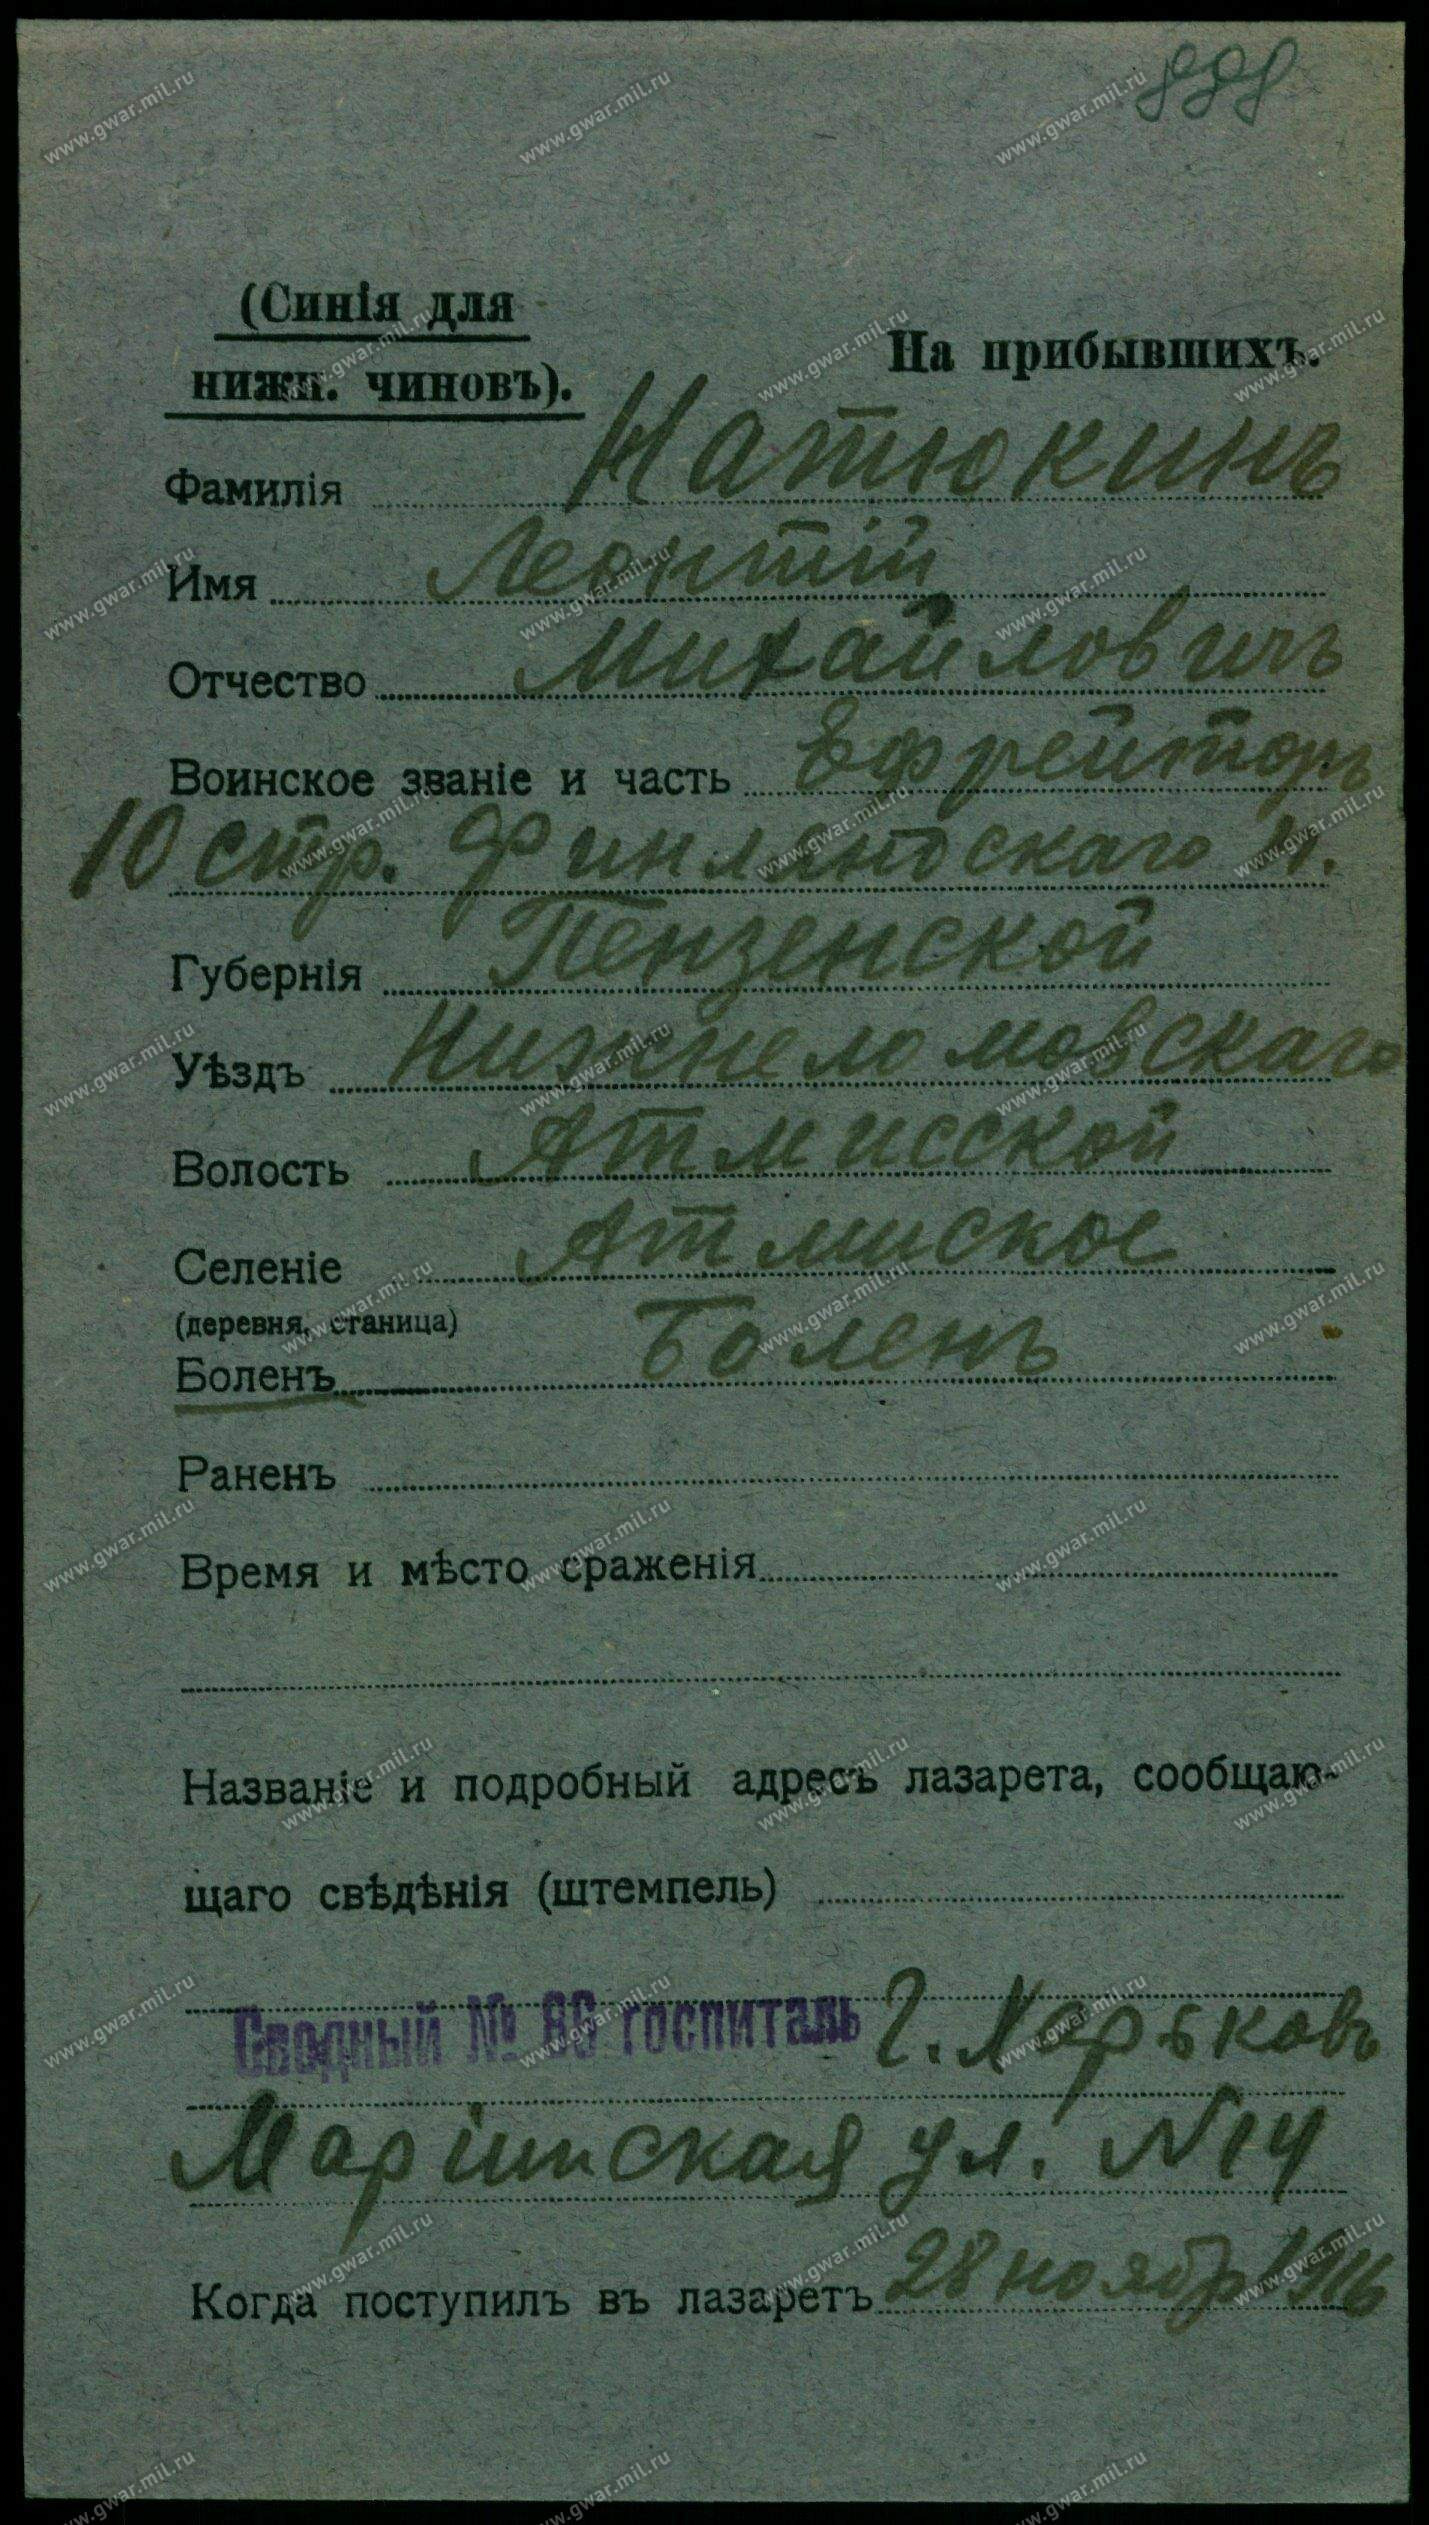 (Синія для
нижн. чиновъ).
На прибывшихъ.
Фамилія Натюкинъ
Имя Леонтій
Отчество Михайловичъ
Воинское званіе и часть Ефрейторъ
10 стр. Финляндскаго п.
Губернія Пензенской
Уѣздъ Нижнеломовскаго
Волость Атмисской
Селеніе Атмиское
(деревня, станица)
Боленъ Боленъ
Раненъ
Время и мѣсто сраженія
Названіе и подробный адресъ лазарета, сообщаю-
щаго свѣдѣнія (штемпель)
Сводный № 86 госпиталь г. Харьковъ
Маріинская ул. №14
Когда поступилъ въ лазаретъ 28 ноябр 1916
www.gwar.mil.ru